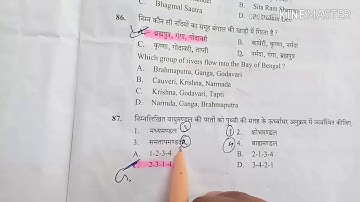 C. Bhagmal Saura
B. Sita Ram
D. Ps
86. निम्न कौन सी नदियों का समूह बंगाल की खाड़ी में गिरता है ?
A. ब्रह्मपुत्र, गंगा, गोदावरी B. कावेरी, कृष्णा, नर्मदा
C. कृष्णा, गोदावरी, ताप्ती D. नर्मदा, गंगा,
Which group of rivers flow into the Bay of Bengal ?
A. Brahmaputra, Ganga, Godavari
B. Cauveri, Krishna, Narmada
C. Krishna, Godavari, Tapti
D. Narmda, Ganga, Brahmaputra
87. निम्नलिखित वायुमण्डल की परतों को पृथ्वी की सतह के ऊर्ध्वाधर अनुक्रम में व्यवस्थित कीजिए
1. मध्यमण्डल 3 1 2. क्षोभमण्डल
3. समतापमण्डल 2 4 4. बाह्यमण्डल
A. 1-2-3-4 B. 2-1-3-4
C. 2-3-1-4 D. 3-4-2-1